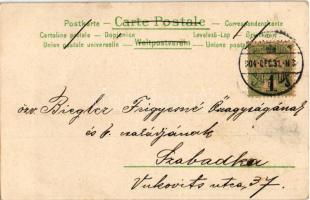 Postkarte — Carte Postale — Correspondenzkarte
Cartolina postale — Dopisnice — Levelező-Lap —
Union postale universelle — Weltpostverein — Unione postale
904 DEC. 31
1
özv. Biegler Frigyesné Őnagyságának
és b. családjának
Szabadka
Vukovits utca, 37.